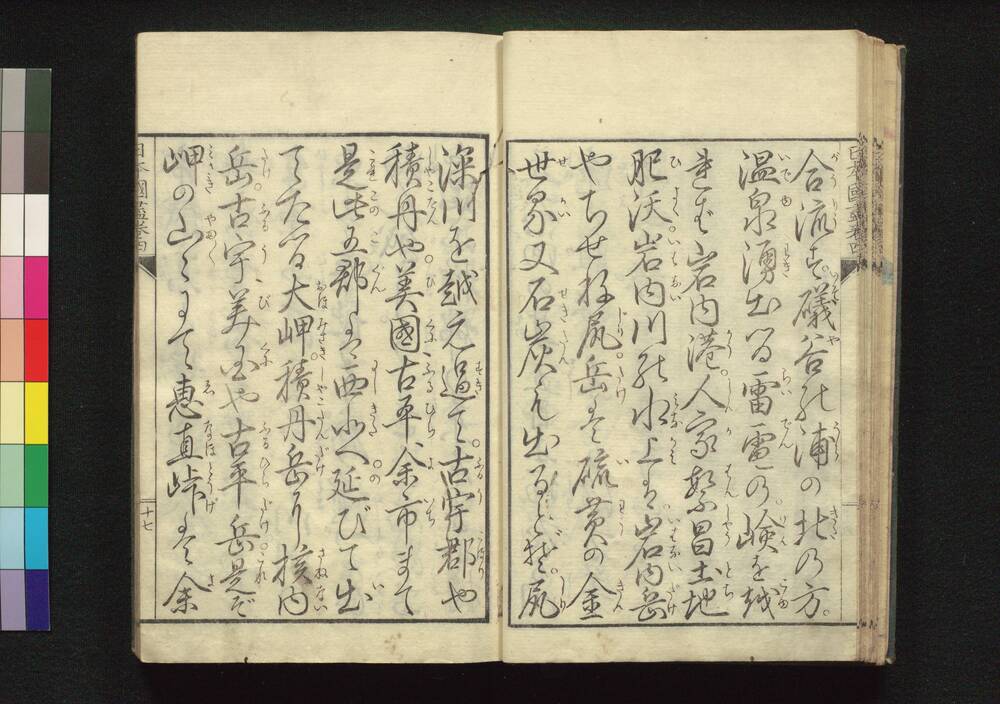 合流す。礒谷の浦の北の方。
温泉湧出る雷電の嶮を越
岩内港。人家繁昌土地
肥沃。岩内川の水上は岩内岳
やちせね尻岳は硫黄の金
世界又石炭も出る尻
深川を越え過て。古宇郡や
積丹や美國古平余市まて
是此五郡は西北へ延びて出
てたる大岬。積丹岳に核内
岳古宇美国や古平岳是ぞ
岬の山々にて恵直峠は余
日本國盡巻四
十七